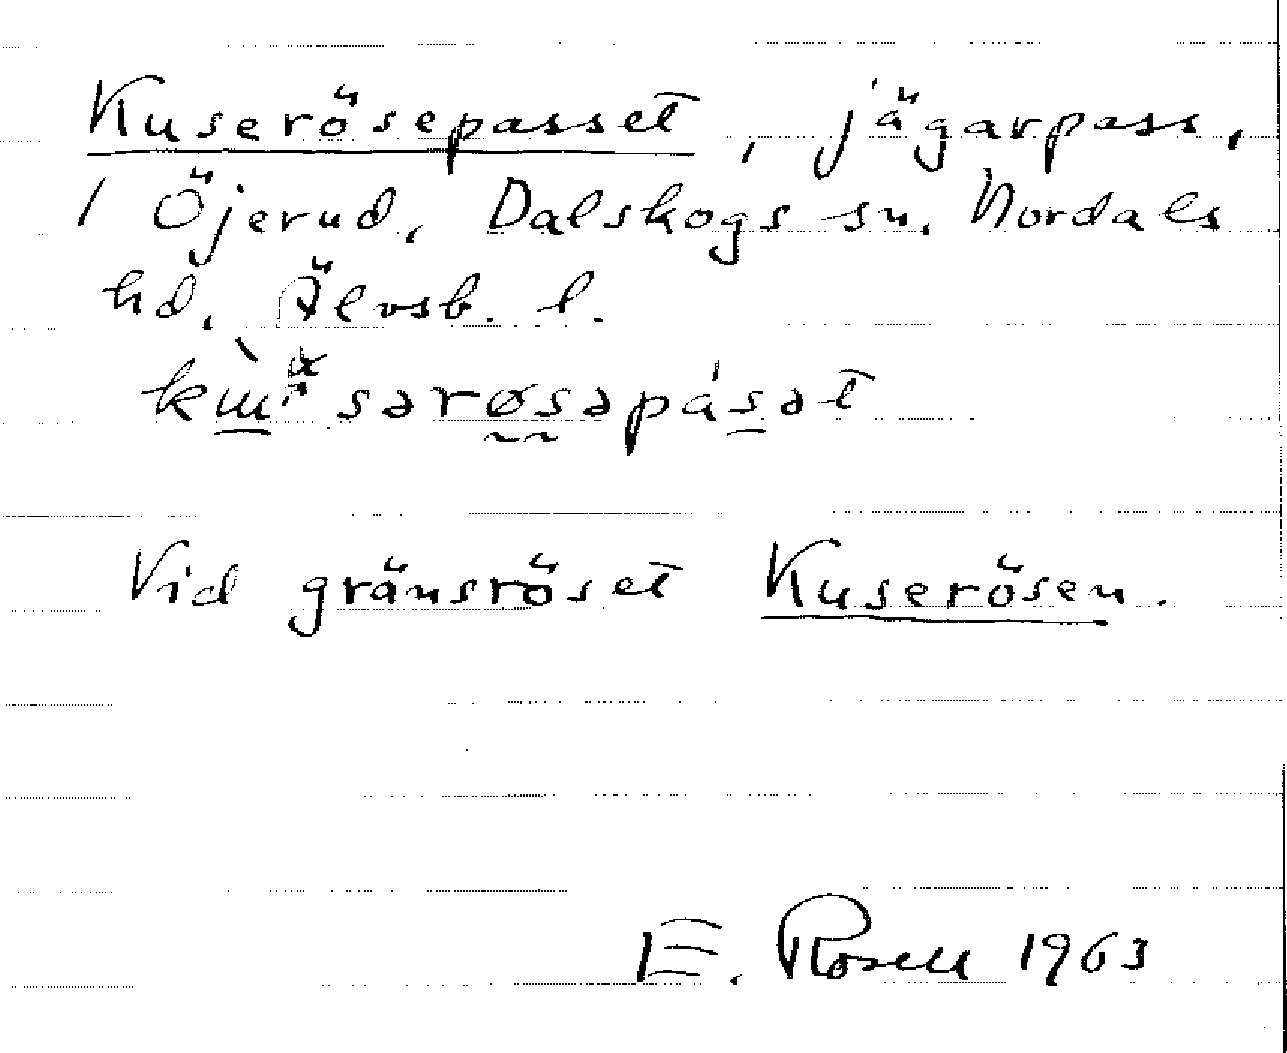 Kuserösepasset, jägarpass,
/ Öjerud, Dalskogs sn. Nordals
hd, Älvsb. l.
sərøsəpásət
Vid gränsröset Kuserösen.
E. Rosell 1963